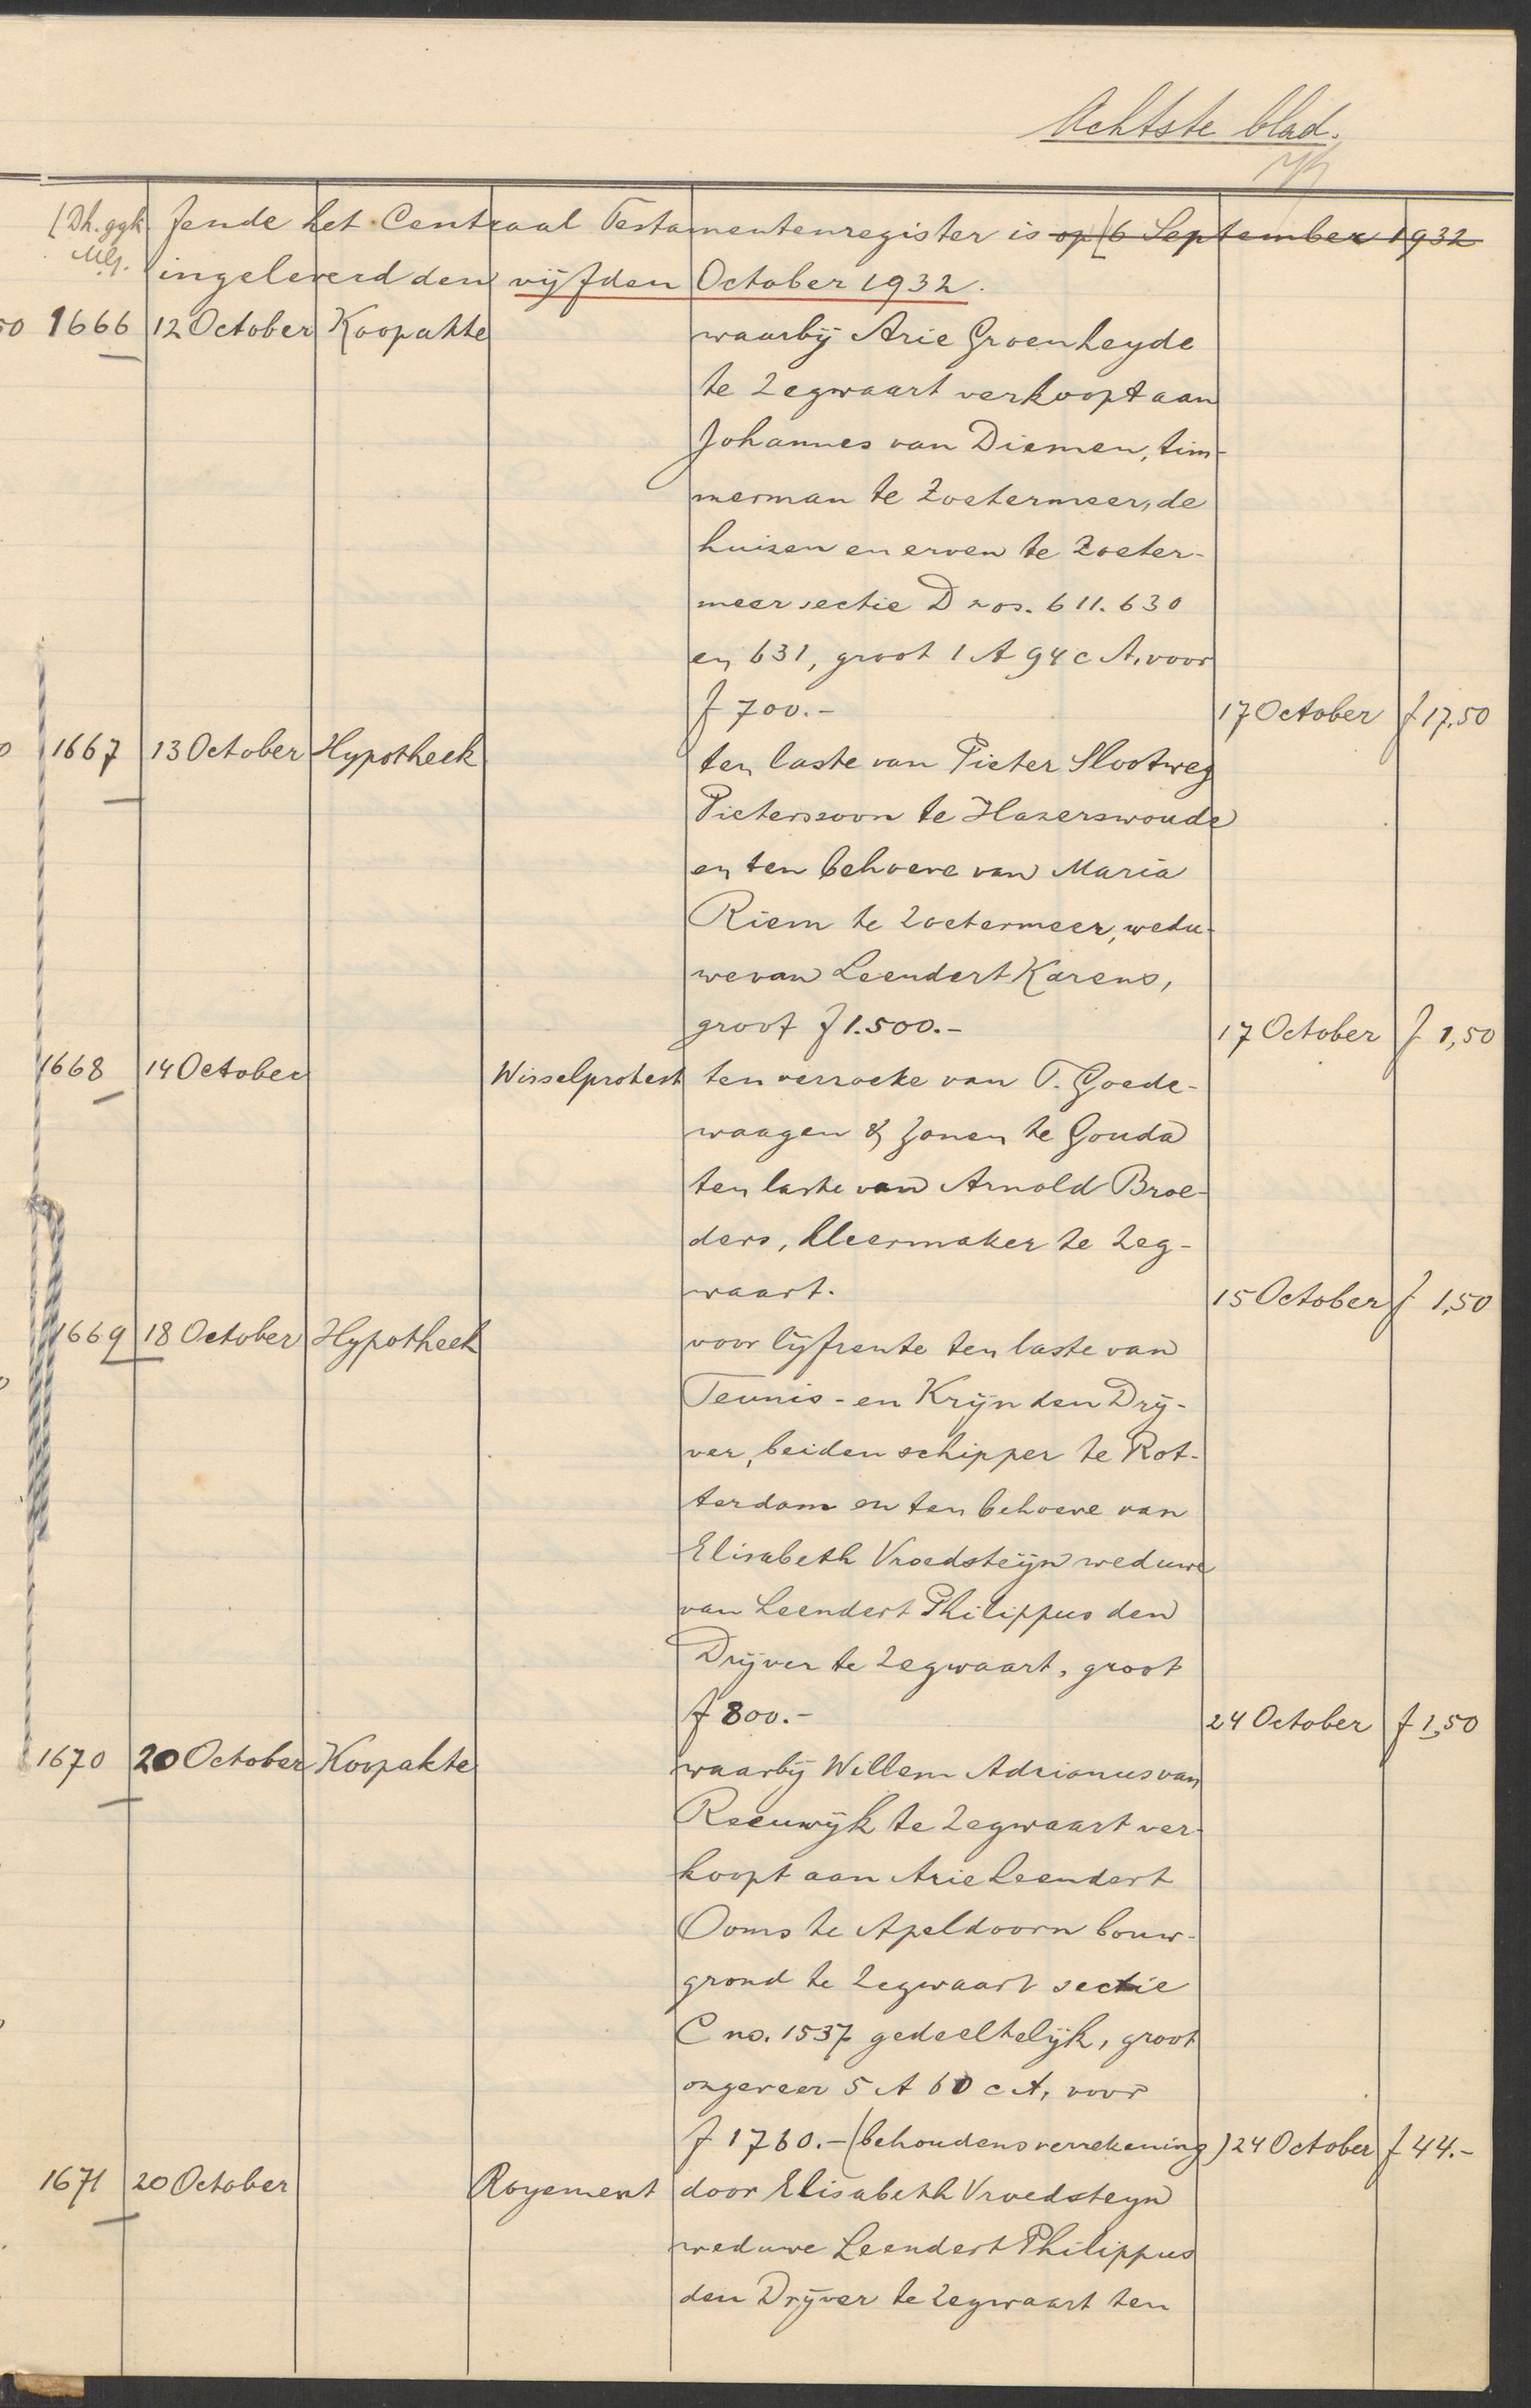 Achtste blad.
fende het Centraal Testamentenregister is op 6 September 1932
ingeleverd den vijfden October 1932.
1666 12 October Koopakte waarbij Arie Groenheyde
te Zegwaart verkoopt aan
Johannes van Diemen, tim-
merman te Zoetermeer, de
huizen en erven te Zoeter-
meer sectie D nos. 611. 630
en 631, groot 1 A 94 cA, voor
f 700.- 17 October f 17,50
1667 13 October Hypotheek ten laste van Pieter Slootweg
Pieterszoon te Hazerswoude
en ten behoeve van Maria
Riem te Zoetermeer, wedu-
we van Leendert Karens,
groot f 1.500.- 17 October f 1,50
1668 14 October Wisselprotest ten verzoeke van T. Goede-
waagen & Zonen te Gouda
ten laste van Arnold Broe-
ders, kleermaker te Zeg-
waart. 15 October f 1,50
1669 18 October Hypotheek voor lijfrente ten laste van
Teunis - en Krijn den Drij-
ver, beiden schipper te Rot-
terdam en ten behoeve van
Elisabeth Vroedsteijn weduwe
van Leendert Philippus den
Drijver te Zegwaart, groot
f 800.- 24 October f 1,50
1670 20 October Koopakte waarbij Willem Adrianus van
Reeuwijk te Zegwaart ver-
koopt aan Arie Leendert
Ooms te Apeldoorn bouw-
grond te Zegwaart sectie
C no. 1537 gedeeltelijk, groot
ongeveer 5 A 60 cA, voor
f 1760.- (behoudens verrekening) 24 October f 44.-
1671 20 October Royement door Elisabeth Vroedsteyn
weduwe Leendert Philippus
den Drijver te Zegwaart ten